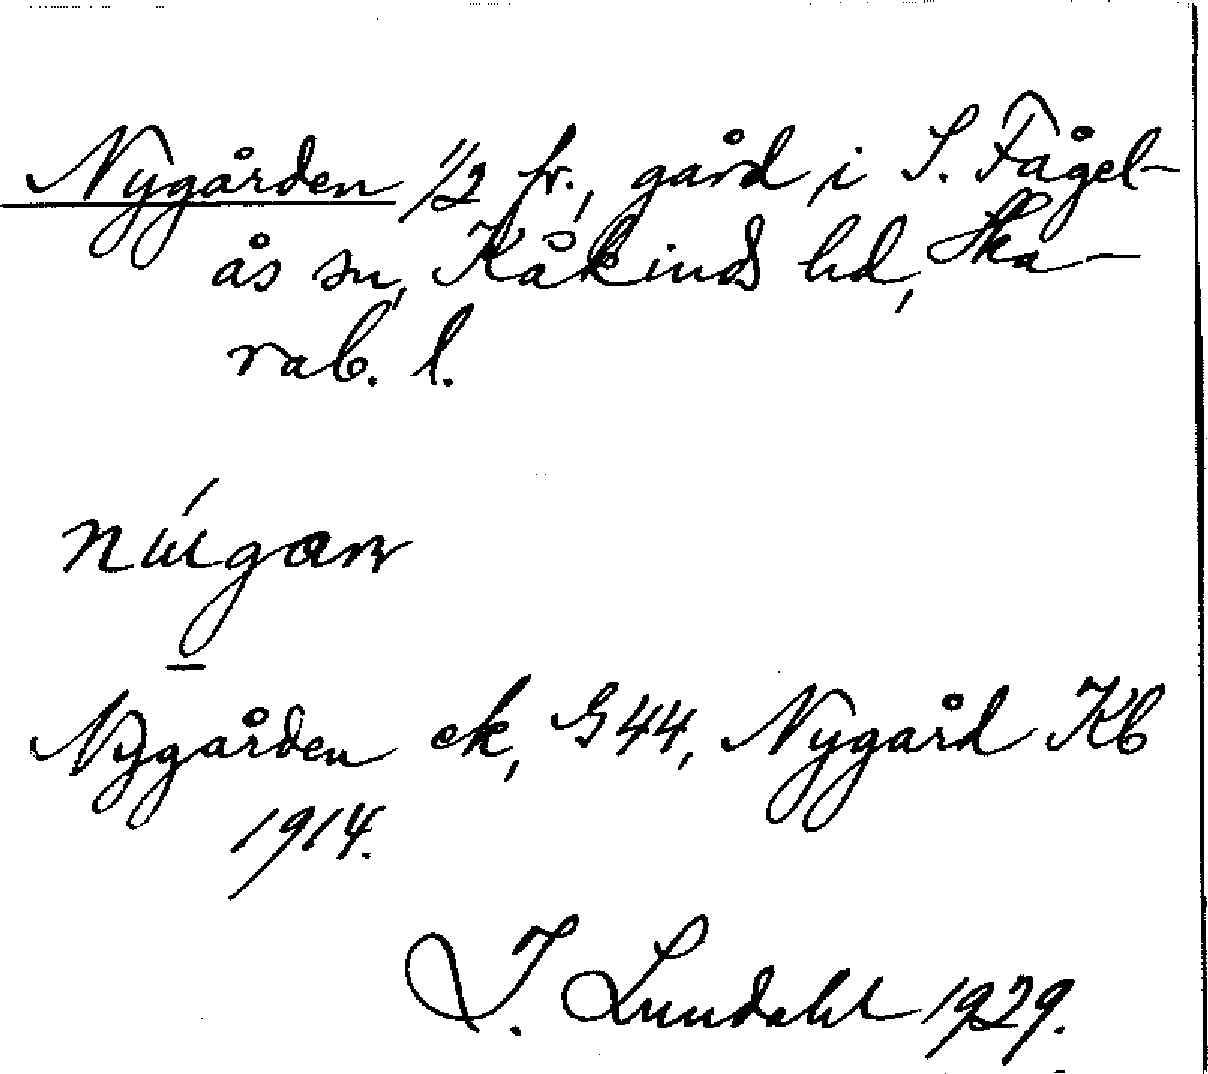 Nygården 1/2 hr., gård i S. Fågel-
ås sn, Kåkinds hd, Ska-
rab. l.
Nygården ek, G 44, Nygård Kb
1914.
I. Lundahl 1929.